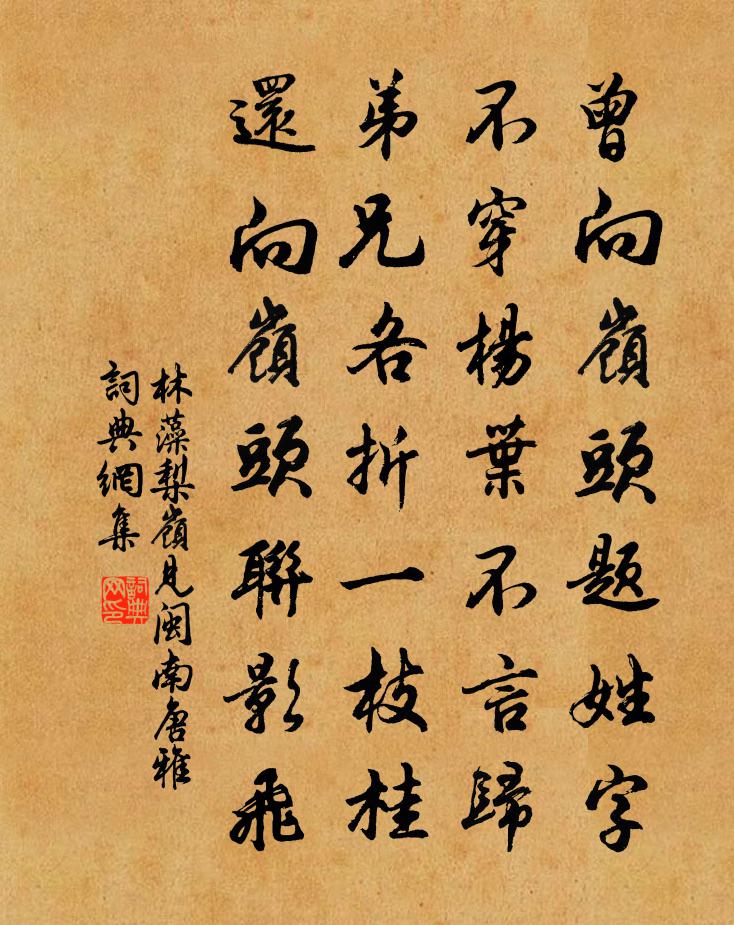 曾向嶺頭題姓字
不穿楊葉不言歸
弟兄各折一枝桂
還向嶺頭聯影飛
林藻梨嶺見閩南唐雅
詞典網集
詞典网印